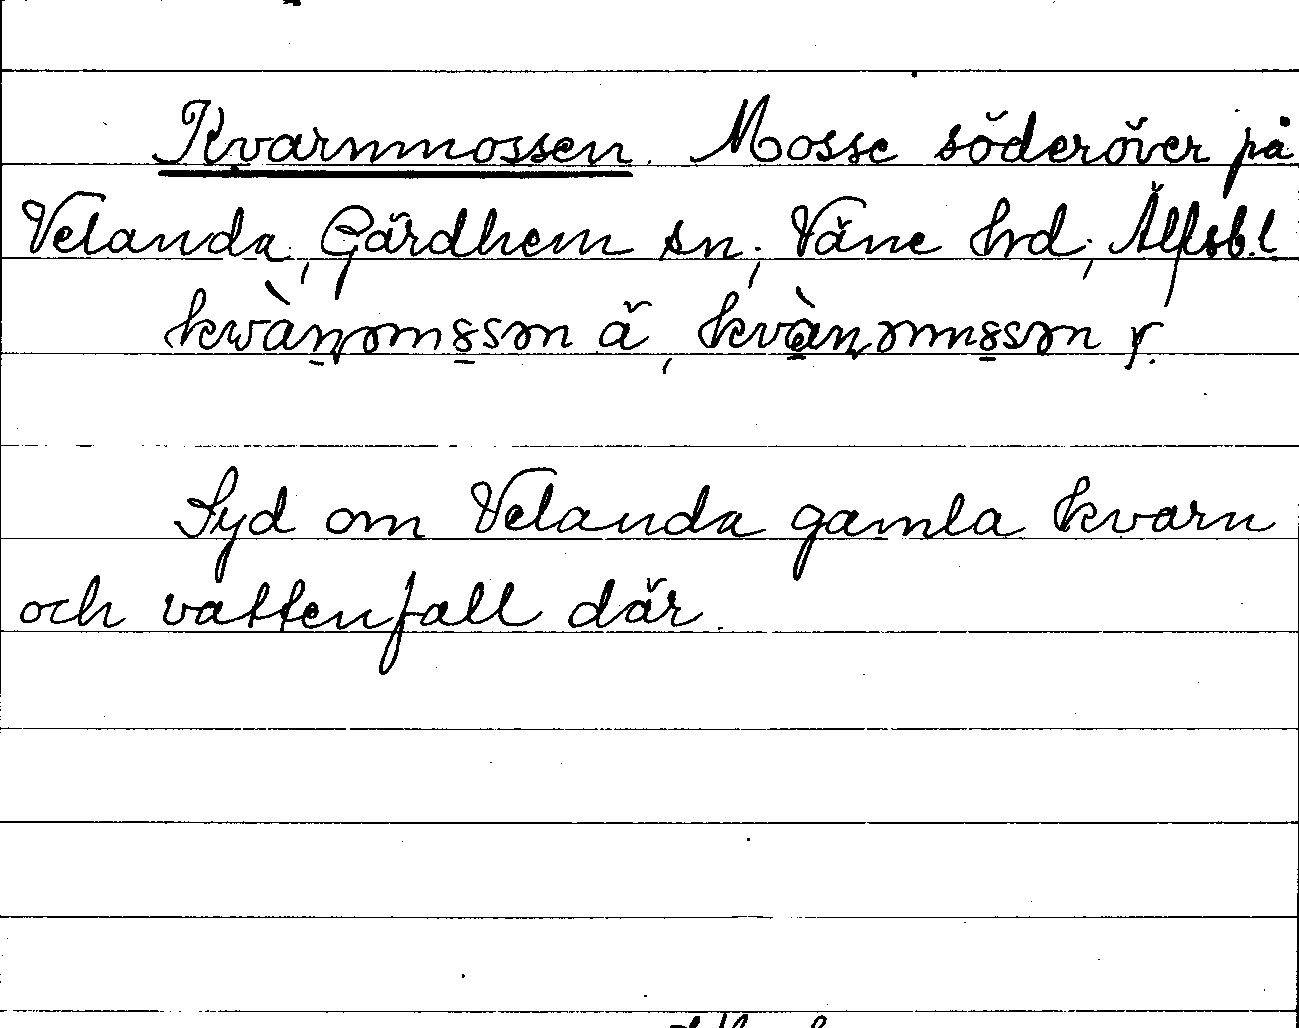 Kvarnmossen. Mosse söderöver på
Velanda, Gärdhem sn; Väne hrd; Älfsb.l.
kwàn̠əm8̠sən ä, kvàn̠əmm8̠sən y.
Syd om Velanda gamla kvarn
och vattenfall där.